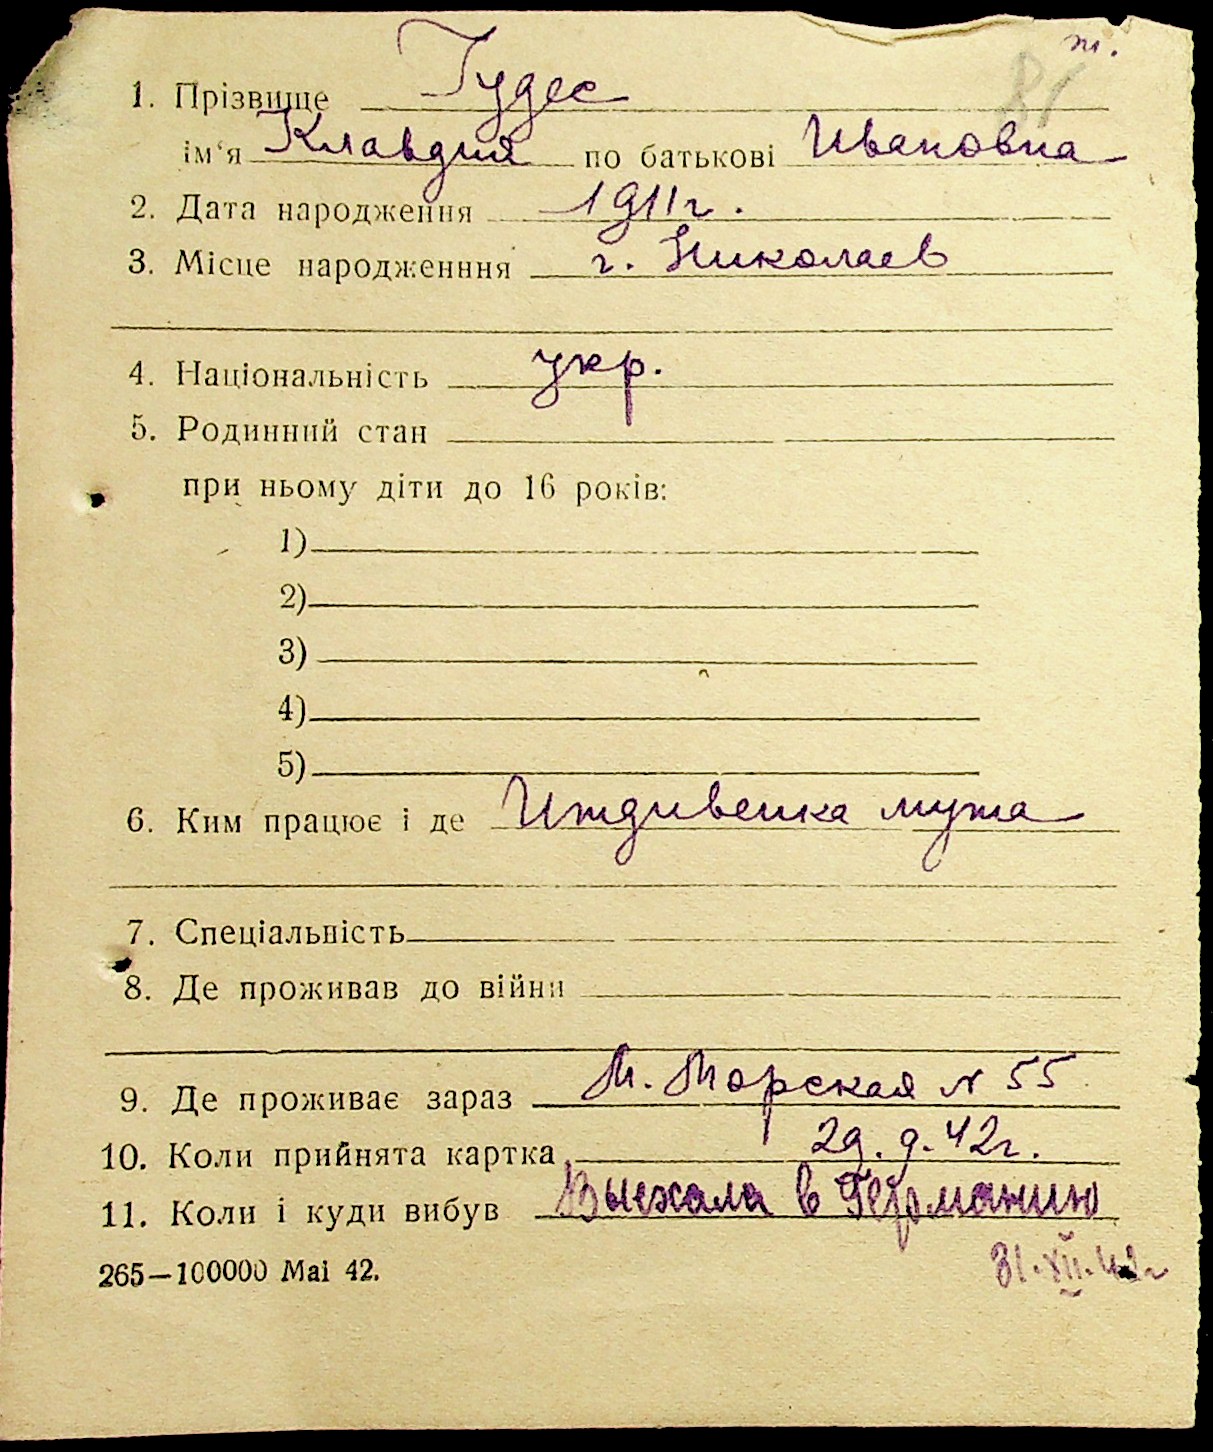 т.
81
1. Прізвище Гудес
ім'я Клавдий по батькові Ивановна
2. Дата народження 1911г.
3. Місце народженння г. Николаев
4. Національність укр.
5. Родинний стан
при ньому діти до 16 років:
1)
2)
3)
4)
5)
6. Ким працює і де Иждивенка мужа
7. Спеціальність
8. Де проживав до війни
9. Де проживає зараз М. Морская № 55
10. Коли прийнята картка 29. 9. 42г.
11. Коли і куди вибув Выехала в Германию
265—100000 Mai 42.
31.XII.42г